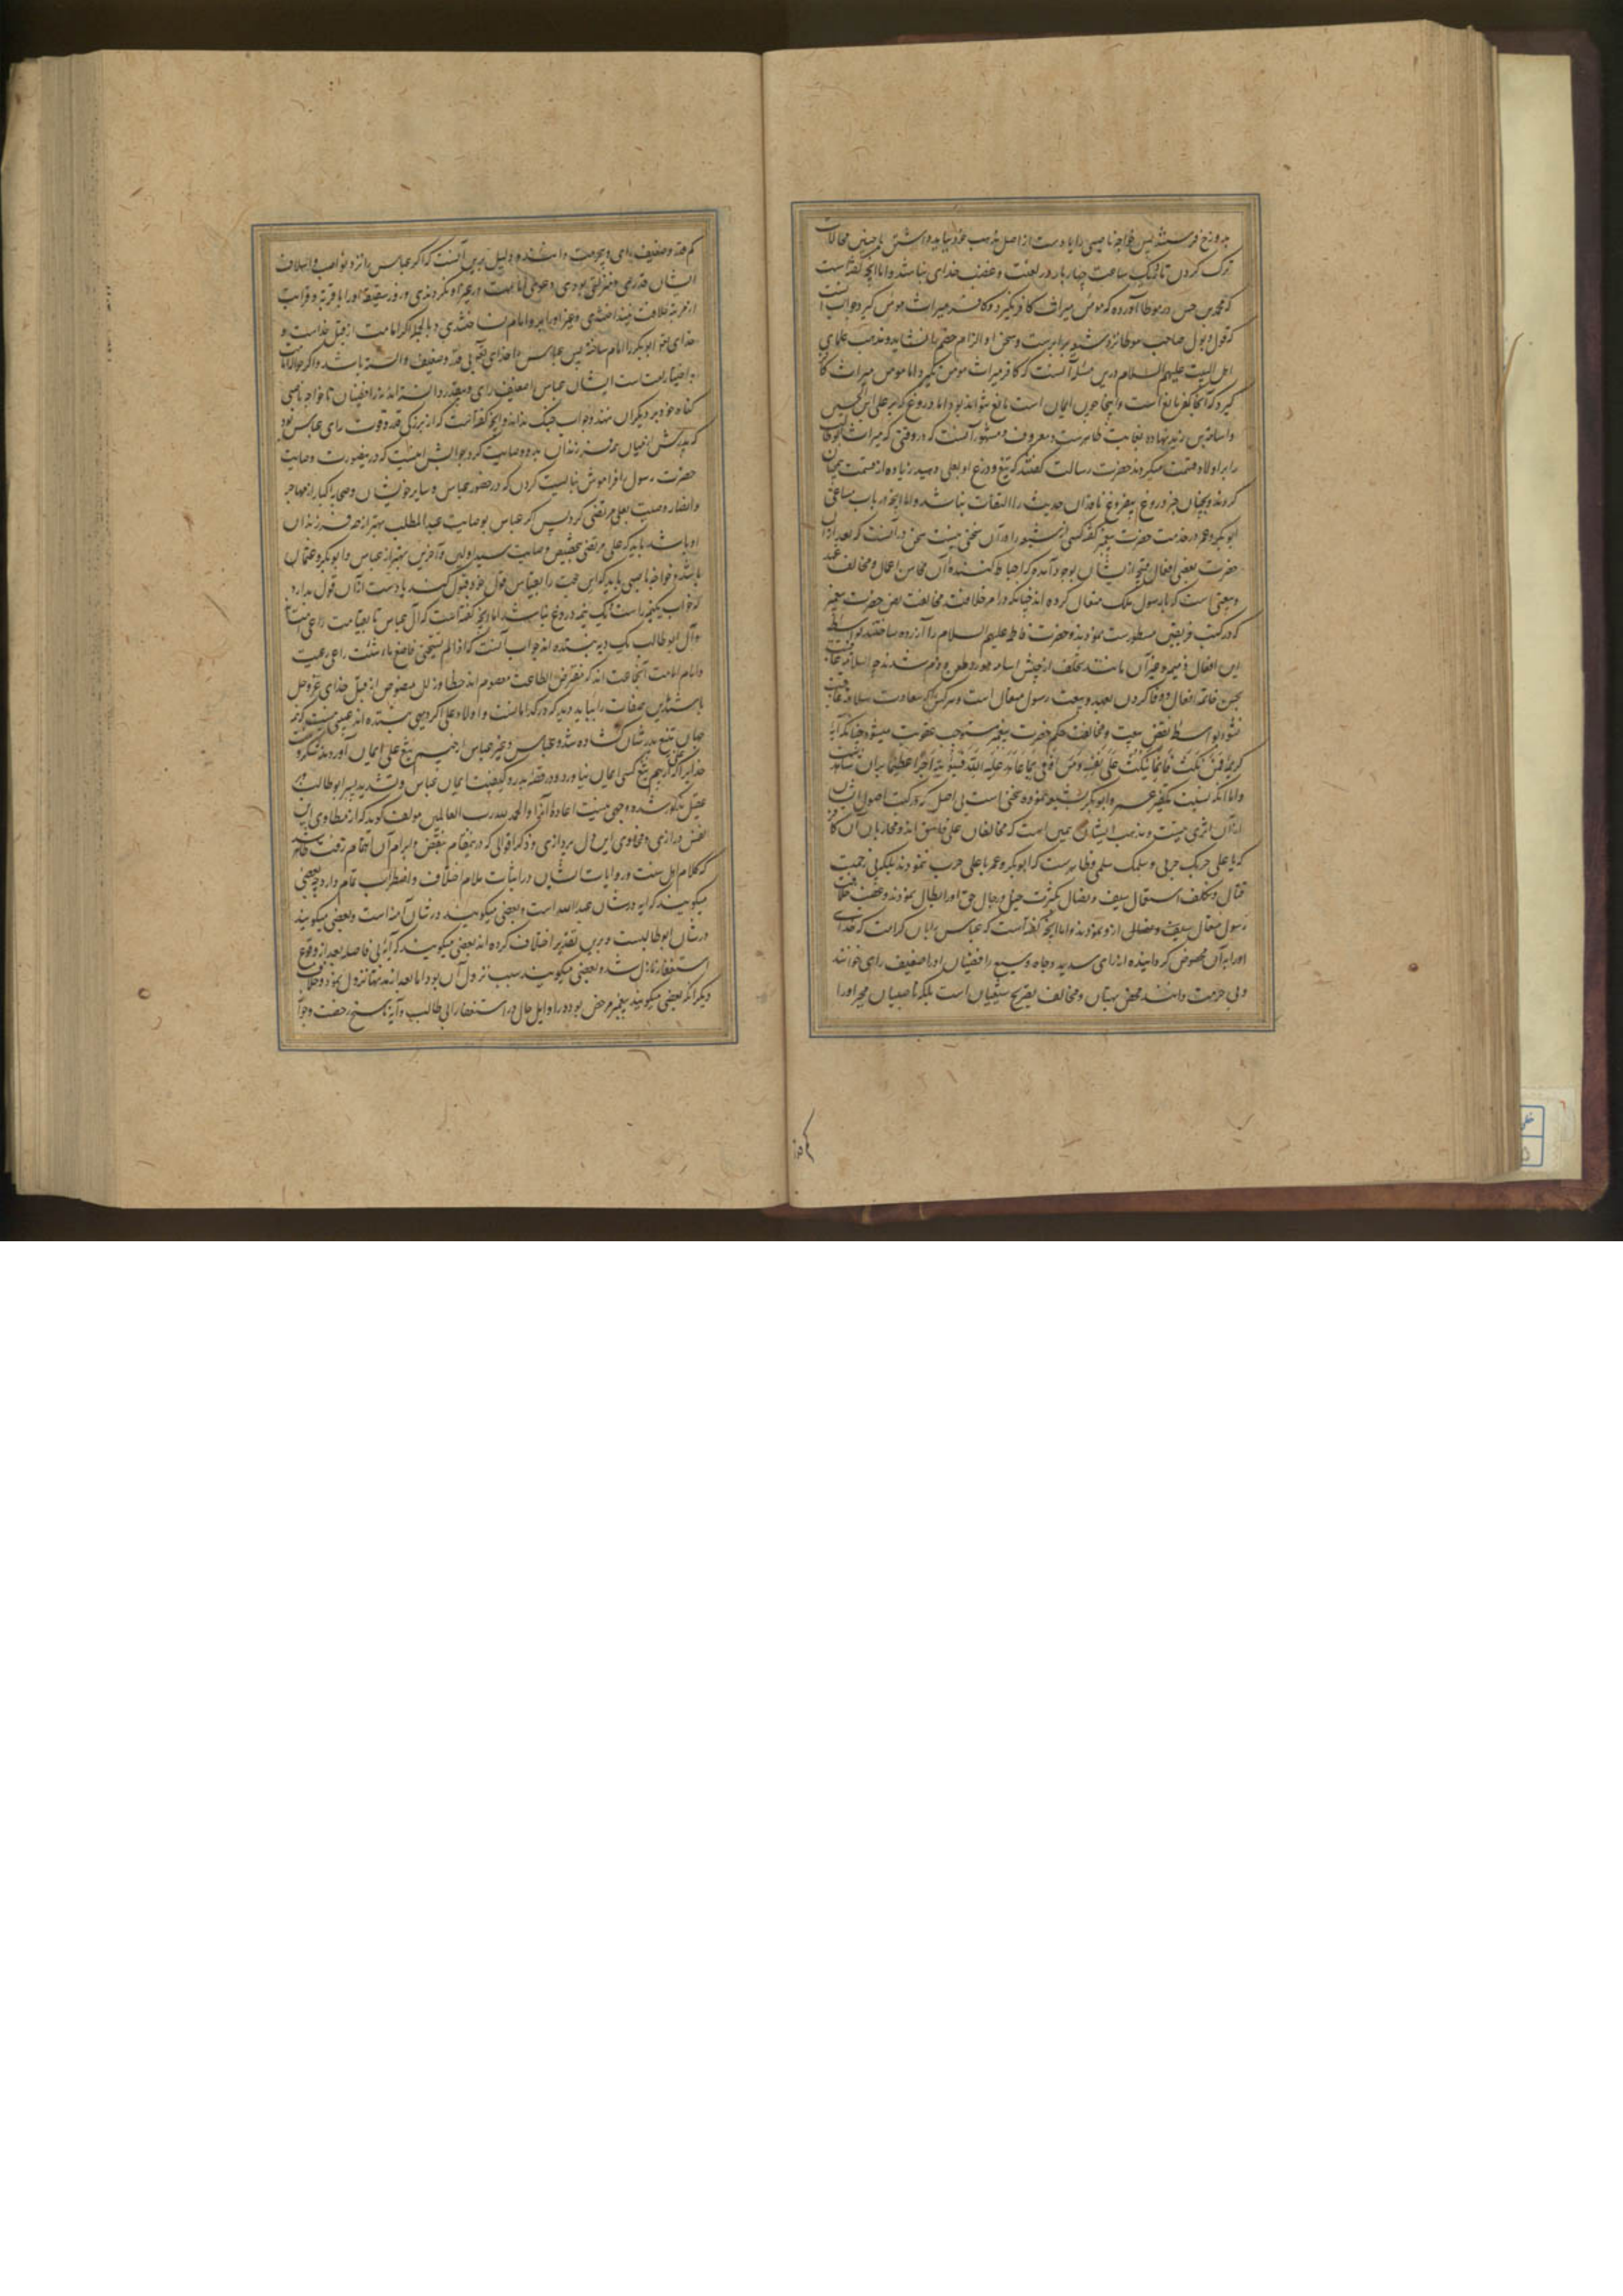 بدوزخ فرستد پس خواجه ناصبی را باید دست از اصل مذهب خود بباید داشتن یا چنین محالات
ترک کردن تا بیک ساعت چهار بار در لعنت و غضب خدای نباشد و اما آنچه گفته است
که محمد بن حسن در موطا آورده که مومن میراث کافر نگیرد و کافر میراث مومن گیرد جواب آنست
که قول و بول صاحب موطا نزد شیعه برابرست و سخن او الزام خصم را نشاید و مذهب علمای
اهل البیت علیهم السلام درین مسئله آنست که کافر میراث مومن نگیرد اما مومن میراث کافر
گیرد که آنجا کفر مانع است و اینجا چون ایمان است مانع نتواند بود اما دروغ که بر علی ابن الحسین
و اسامة بن زید نهاده بغایت ظاهرست و معروف و مشهور آنست که در وقتی که میراث ابوطالب
را بر اولاد قسمت میکردند حضرت رسالت گفتند که تیغ و درع او بعلی دهید زیاده از قسمت همچنان
کردند و چنان جز دروغ بیفروغ ناقدان حدیث را التفات نباشد و اما آنچه در باب مساعی
ابوبکر و عمر در خدمت حضرت پیغمبر گفته کسی از شیعه را در آن سخنی نیست سخن در آنست که بعد از آن
حضرت بعضی افعال قبیحه از ایشان بوجود آمد که احباط کننده آن محاسن اعمال و مخالف عهد
و بیعتی است که با رسول ملک متعال کرده اند چنانکه در امر خلافت مخالفت نص حضرت پیغمبر
که در کتب فریقین مسطورست نمودند و حضرت فاطمه علیهم السلام را آزرده ساختند بواسطه
این افعال ذمیمه و غیر آن مانند تخلف از جیش اسامه مورد طعن و ذم شدند چه سلامت عاقبت
بحسن خاتمه افعال و وفا کردن بعهد و بیعت رسول متعال است و هر کس که سعادت سلامت عاقبت
نشود بواسطه نقض بیعت و مخالفت حکم حضرت پیغمبر مستوجب عقوبت میشود چنانکه آیه
کریمه فَمَنْ نَكَثَ فَإِنَّمَا يَنْكُثُ عَلَى نَفْسِهِ وَمَنْ أَوْفَى بِمَا عَاهَدَ عَلَيْهُ اللَّهَ فَسَيُؤْتِيهِ أَجْرًا عَظِيمًا بر آن شاهدست
و اما آنکه نسبت تکفیر عمر و ابوبکر بشیعه نموده سخنی است بی اصل که در کتب اصول ایشان
از آن اثری نیست و مذهب ایشان همین است که مخالفان علی فاسق اند و محاربان آن کافر
که یا علی حربک حربی و سلمک سلمی و ظاهرست که ابوبکر و عمر با علی حرب ننمودند بلکه بی زحمت
قتال و تکلف استعمال سیف و نصال بکثرت خیل و رجال حق او را ابطال نمودند و غصب خلافت
رسول متعال بسیف و نصالی از و نمودند و اما آنچه گفته است که عباس با آن کرامت که خدا
او را به آن مخصوص گردانیده از رای سدید و جاه وسیع رافضیان او را ضعیف رای خوانند
و بی حرمت دانند محض بهتان و مخالف تصریح شیعیان است بلکه ناصبیان مجبر او را
کم قدر و ضعیف رای و بیحرمت دانند و دلیل برین آنست که اگر عباس را نزد نواصب و اسلاف
ایشان قدری و منزلتی بودی دعوی امامت در غیر او نکردندی و روز سقیفه او را با قربت و قرابت
از مرتبه خلافت نینداختندی و غیر او را امیر و امام نساختندی و بالجمله اگر امامت از قبل خداست و
خدای تعالی ابوبکر را امام ساخته پس عباس را خدای تعالی بی قدر و ضعیف دانسته باشد و اگر حواله امامت
به اختیار امت است ایشان عباس را ضعیف رای و بیقدر دانسته اند نه رافضیان تا خواجه ناصبی
گناه خود بر دیگران ننهد و جواب خبک نداند و آنچه گفته آنست که از بزرگی قدر و قوت رای عباس بود
که پدرش از میان همه فرزندان بدو وصایت کرد جوابش اینست که درین صورت وصایت
حضرت رسول را فراموش نبایست کردن که در حضور عباس و سایر خویشان و صحابه کبار از مهاجر
و انصار وصیت بعلی مرتضی کرد پس اگر عباس بوصایت عبدالمطلب بهتر از همه فرزندان
او باشد باید که علی مرتضی بتخصیص وصایت سید اولین و آخرین بهتر از عباس و ابوبکر و عثمان
باشد و خواجه ناصبی باید که این حجت را بقیاس قول خود قبول کند یا دست از آن قول بدارد
که خواب یکنیمه راست و یک نیمه دروغ نباشد اما آنچه گفته است که آل عباس تا بقیامت راعی امت
و آل ابوطالب یک دیه نستده اند جواب آنست که اذا لم تستحی فاصنع ما شئت راعی رعیت
و امام امامت آنجماعت اند که مفترض الطاعت معصوم اند از خطا و زلل منصوص از قبل خدای عز و جل
باشند این صفات را بباید دید که در کدام است و اولاد علی اگر دیهی نستده اند عیبی نیست که همه
جهان بتیغ پدرشان گشاده شد و عباس و غیر عباس از بیم تیغ علی ایمان آوردند شکر و منت
خدایرا که علی از بیم تیغ کسی ایمان نیاورد و در قصه بدر و کیفیت ایمان عباس و تشدید پسر ابوطالب بر
عقیل مذکور شده و وجهی نیست اعاده آنرا و الحمد لله رب العالمین مولف گوید که از مطاوی این
نفس درازی و فحاوی این قال پردازی و ذکر اقوالی که درین مقام بنقض و ابرام آن اهتمام رفت ظاهر شد
که کلام اهل سنت و روایات ایشان در اثبات مدام اختلاف و اضطراب تمام دارد چه بعضی
میگویند که آیه در شان عبدالله است و بعضی میگویند در شان آمنه است و بعضی میگویند
در شان ابوطالبست و برین تقدیر اختلاف کرده اند بعضی میگویند که آیه بی فاصله بعد از وقوع
استغفار نازل شد و بعضی میگویند سبب نزول آن بود اما بعد از مدتها نزول نمود و خلاف
دیگر آنکه بعضی میگویند پیغمبر مرخص بود در اوایل حال در استغفار ابی طالب و آیه ناسخ رخصت و جواز